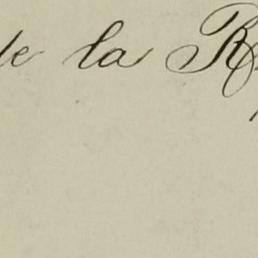 de la R